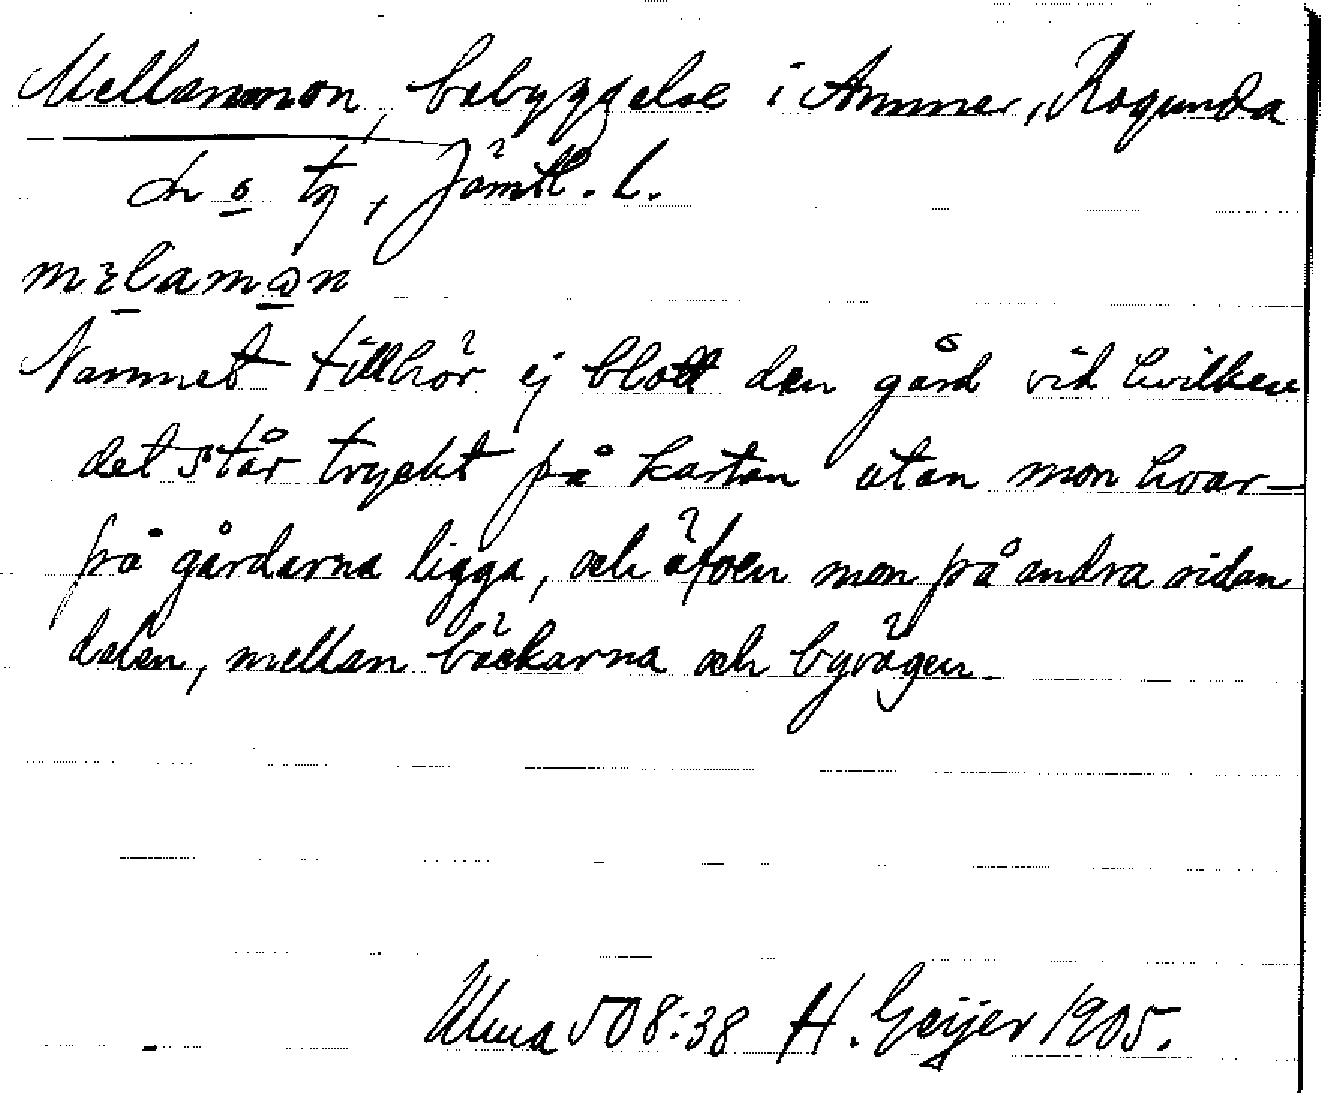 Mellanmon, bebyggelse i Ammer, Ragunda
sn o tg, Jämtl. l.
Namnet tillhör ej blott den gård vid hvilken
det står tryckt på kartan utan mon hvar-
på gårdarna ligga, och äfven mon på andra sidan
dalen, mellan bäckarna och byvägen.
Ulma 508:38 H. Geijer 1905.